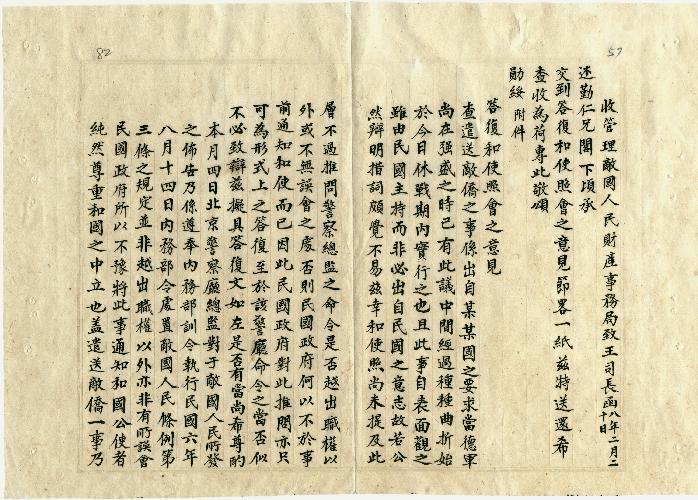 57
收管理敵國人民財產事務局致王司長函 八年二月二十日
述勤仁兄閣下頃承
交到答復和使照會之意見節畧一紙茲特送還希
查收為荷專此敬頌
勛綏 附件
答復和使照會之意見
查遣送敵僑之事係出自某某國之要求當德軍
尚在强盛之時已有此議中間經過種種曲折始
於今日休戰期內實行之也且此事自表面觀之
雖由民國主持而非必出自民國之意志故若公
然辯明措詞頗覺不易茲幸和使照尚未提及此
層不過推問警察總監之命令是否越出職權以
外或不無誤會之處否則民國政府何以不於事
前通知和使而已因此民國政府對此推問亦只
可為形式上之答復至於該警廳命令之當否似
不必致辯茲擬具答復文如左是否有當尚希尊酌
本月四日北京警察廳總監對于敵國人民所發
之佈告乃係遵奉內務部訓令執行民國六年
八月十四日內務部令處置敵國人民條例第
三條之規定並非越出職權以外亦非有所誤會
民國政府所以不豫將此事通知和國公使者
純然尊重和國之中立也蓋遣送敵僑一事乃
82